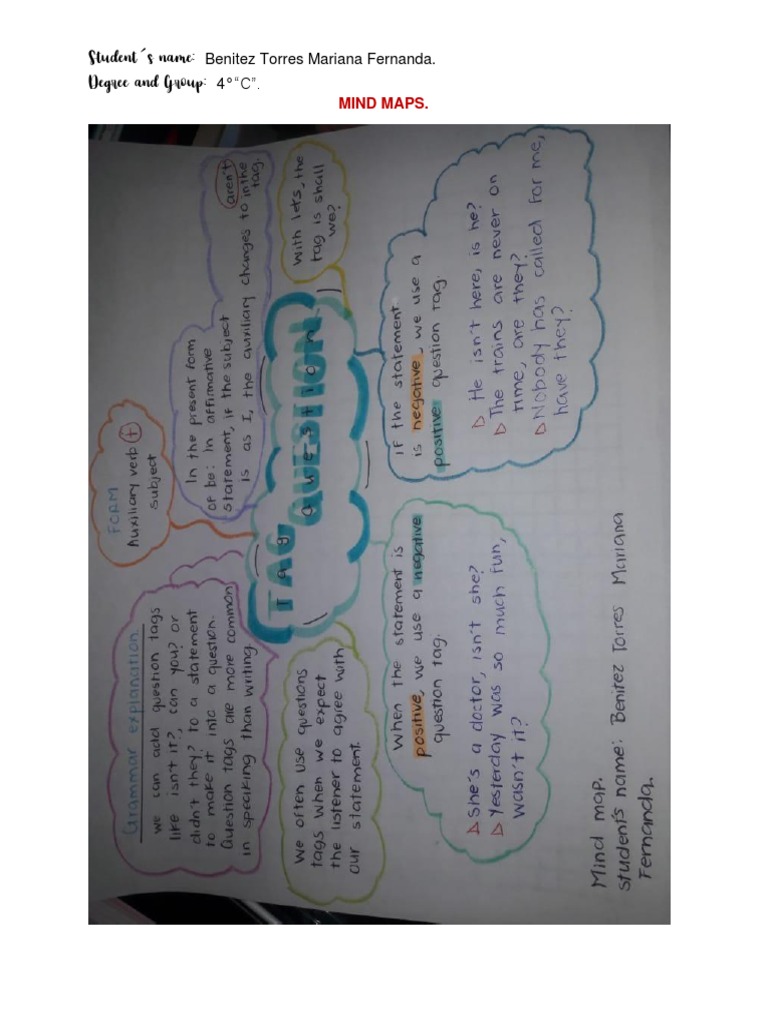 Student´s name: Benitez Torres Mariana Fernanda.
Degree and Group: 4°“C”.
MIND MAPS.
Grammar explanation.
we can add question tags
like isn't it?, can you? or
didn't they? to a statement
to make it into a question.
Question tags are more common
in specking than writing.
FORM
Auxiliary verb +
subject
In the present form
of be: In affirmative
statement, if the subject
is as I, the auxiliary changes to
aren't
in the
tag.
We often use questions
tags when we expect
the listener to agree with
our statement.
TAG
QUESTION
Tag
question
With lets, the
tag is shall
we?
When the statement is
positive, we use a negative
question tag.
She's a doctor, isn't she?
Yesterday was so much fun,
wasn't it?
If the statement
is negative, we use a
positive question tag.
He isn't here, is he?
The trains are never on
time, are they?
Nobody has called for me,
have they?
Mind map.
student's name: Benitez Torres Mariana
Fernanda.